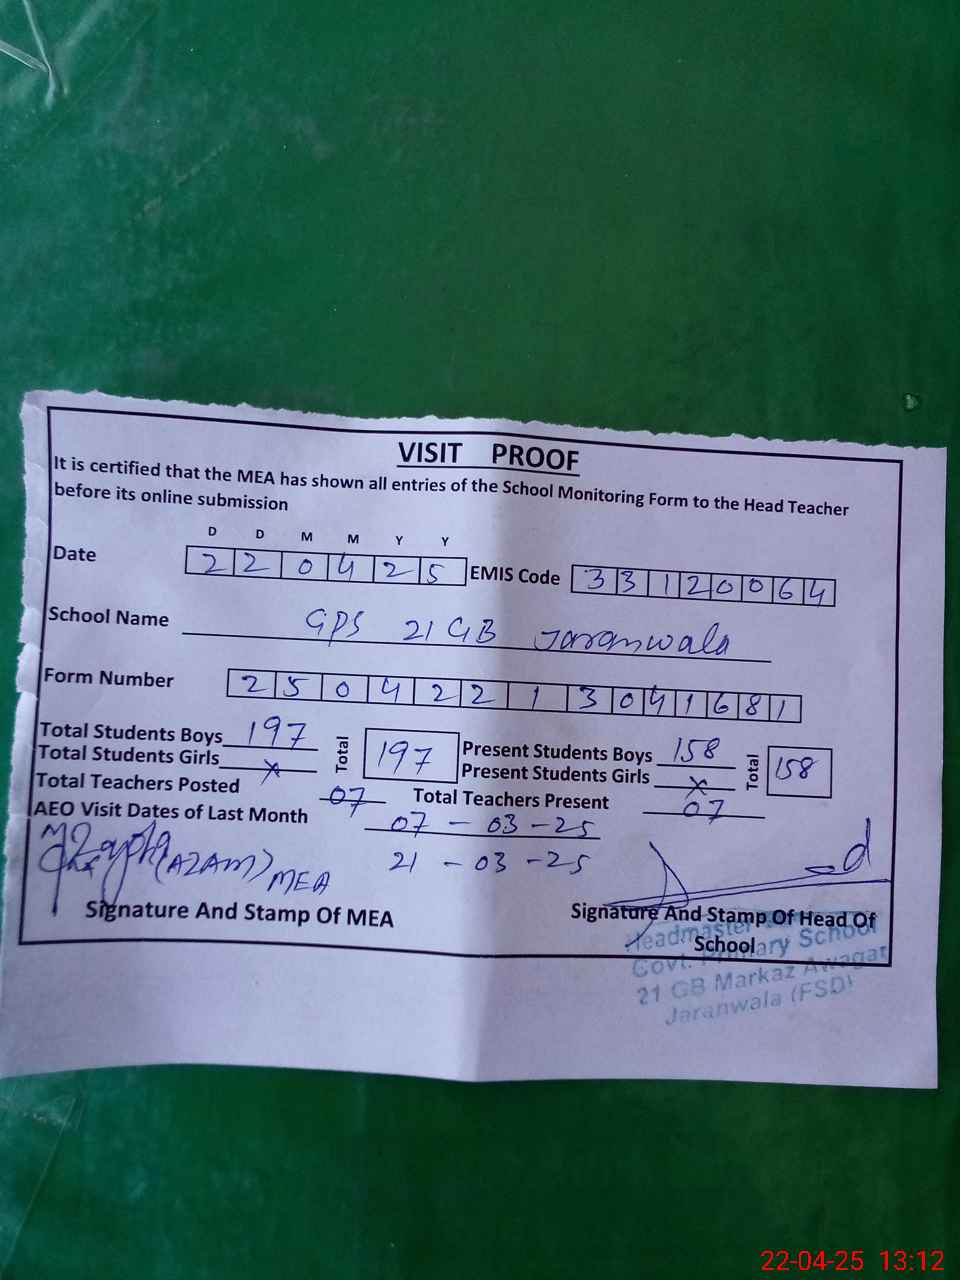 VISIT PROOF
It is certified that the MEA has shown all entries of the School Monitoring Form to the Head Teacher
before its online submission
D D M M Y Y
Date 2 2 0 4 2 5 EMIS Code 3 3 1 2 0 0 6 4
School Name GPS 21 GB Jaranwala
Form Number 2 5 0 4 2 2 1 3 0 4 1 6 8 1
Total Students Boys 197 Total 197 Present Students Boys 158 Total 158
Total Students Girls x Present Students Girls x
Total Teachers Posted 07 Total Teachers Present 07
AEO Visit Dates of Last Month 07 - 03 - 25
21 - 03 - 25
(AZAM) MEA
Signature And Stamp Of MEA
Signature And Stamp Of Head Of
School
Headmaster
Govt. Primary School
21 GB Markaz Awagat
Jaranwala (FSD)
22-04-25 13:12